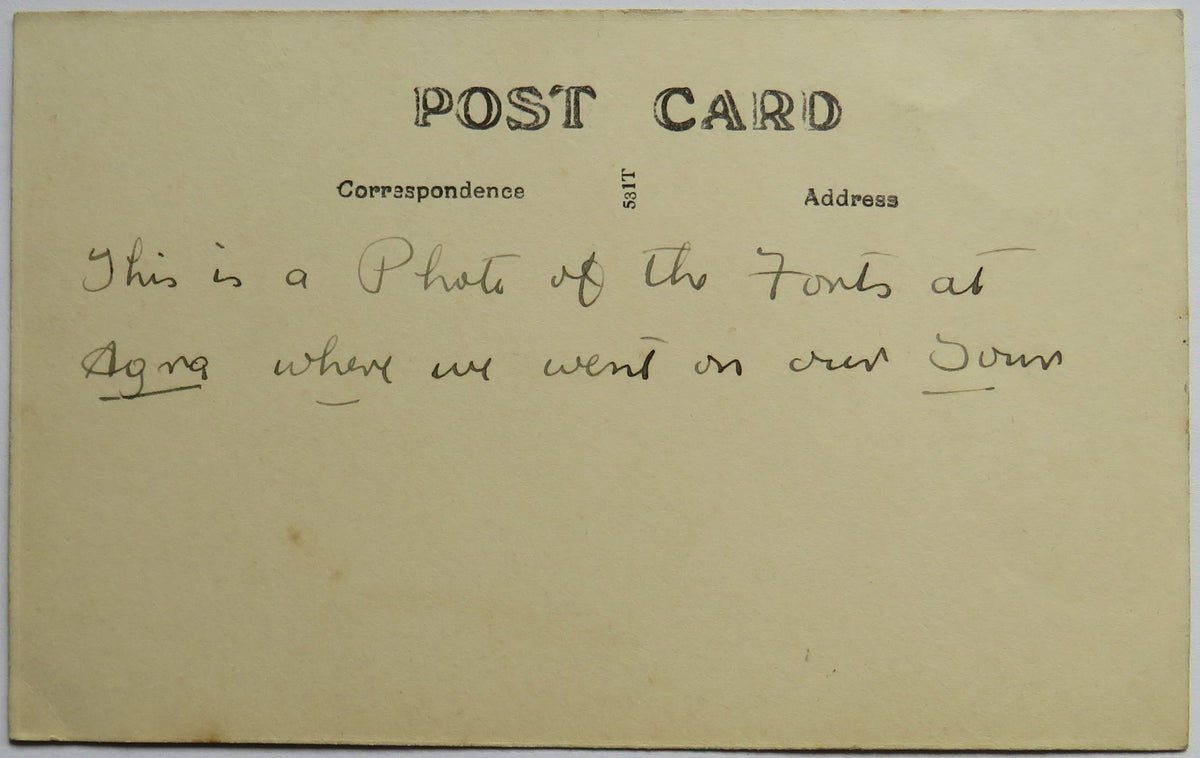 POST CARD
Correspondence
531T
Address
This is a Photo of the Forts at
Agra where we went on our Tour